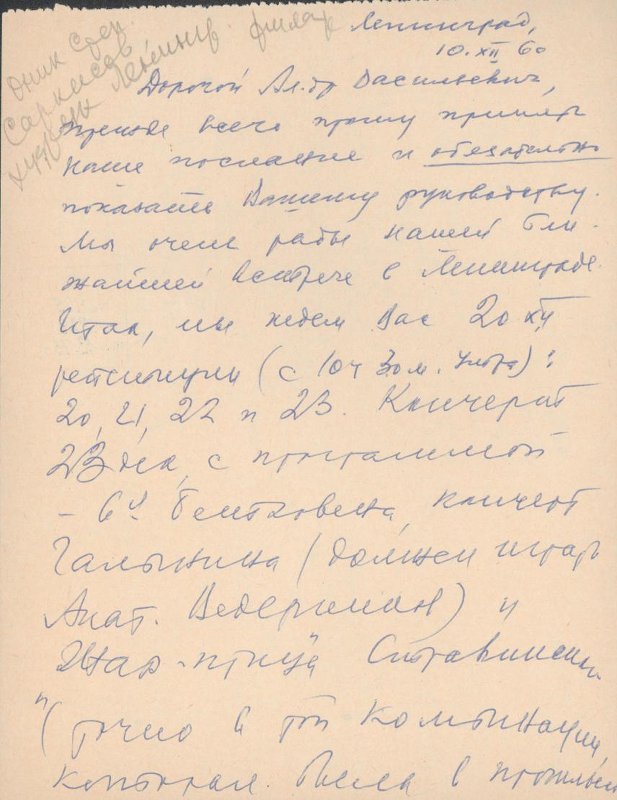 Оник Степ.
Саркисов
худ. рук. Ленингр. филар
Ленинград,
10.XII 60
Дорогой Ал-др Васильевич,
прежде всего прошу принять
наше послание и обязательно
показать Вашему руководству.
Мы очень рады нашей бли-
жайшей встрече в Ленинграде.
Итак, мы ждем Вас 20 XII
репетиции (с 10 ч 30 м. утра):
20, 21, 22 и 23. Концерт
23 дек, с программой
– 6я Бетховена, концерт
Галынина (должен играть
Анат. Ведерников) и
Жар-птица Стравинский
(точно в той комбинации,
которая была в прошлом